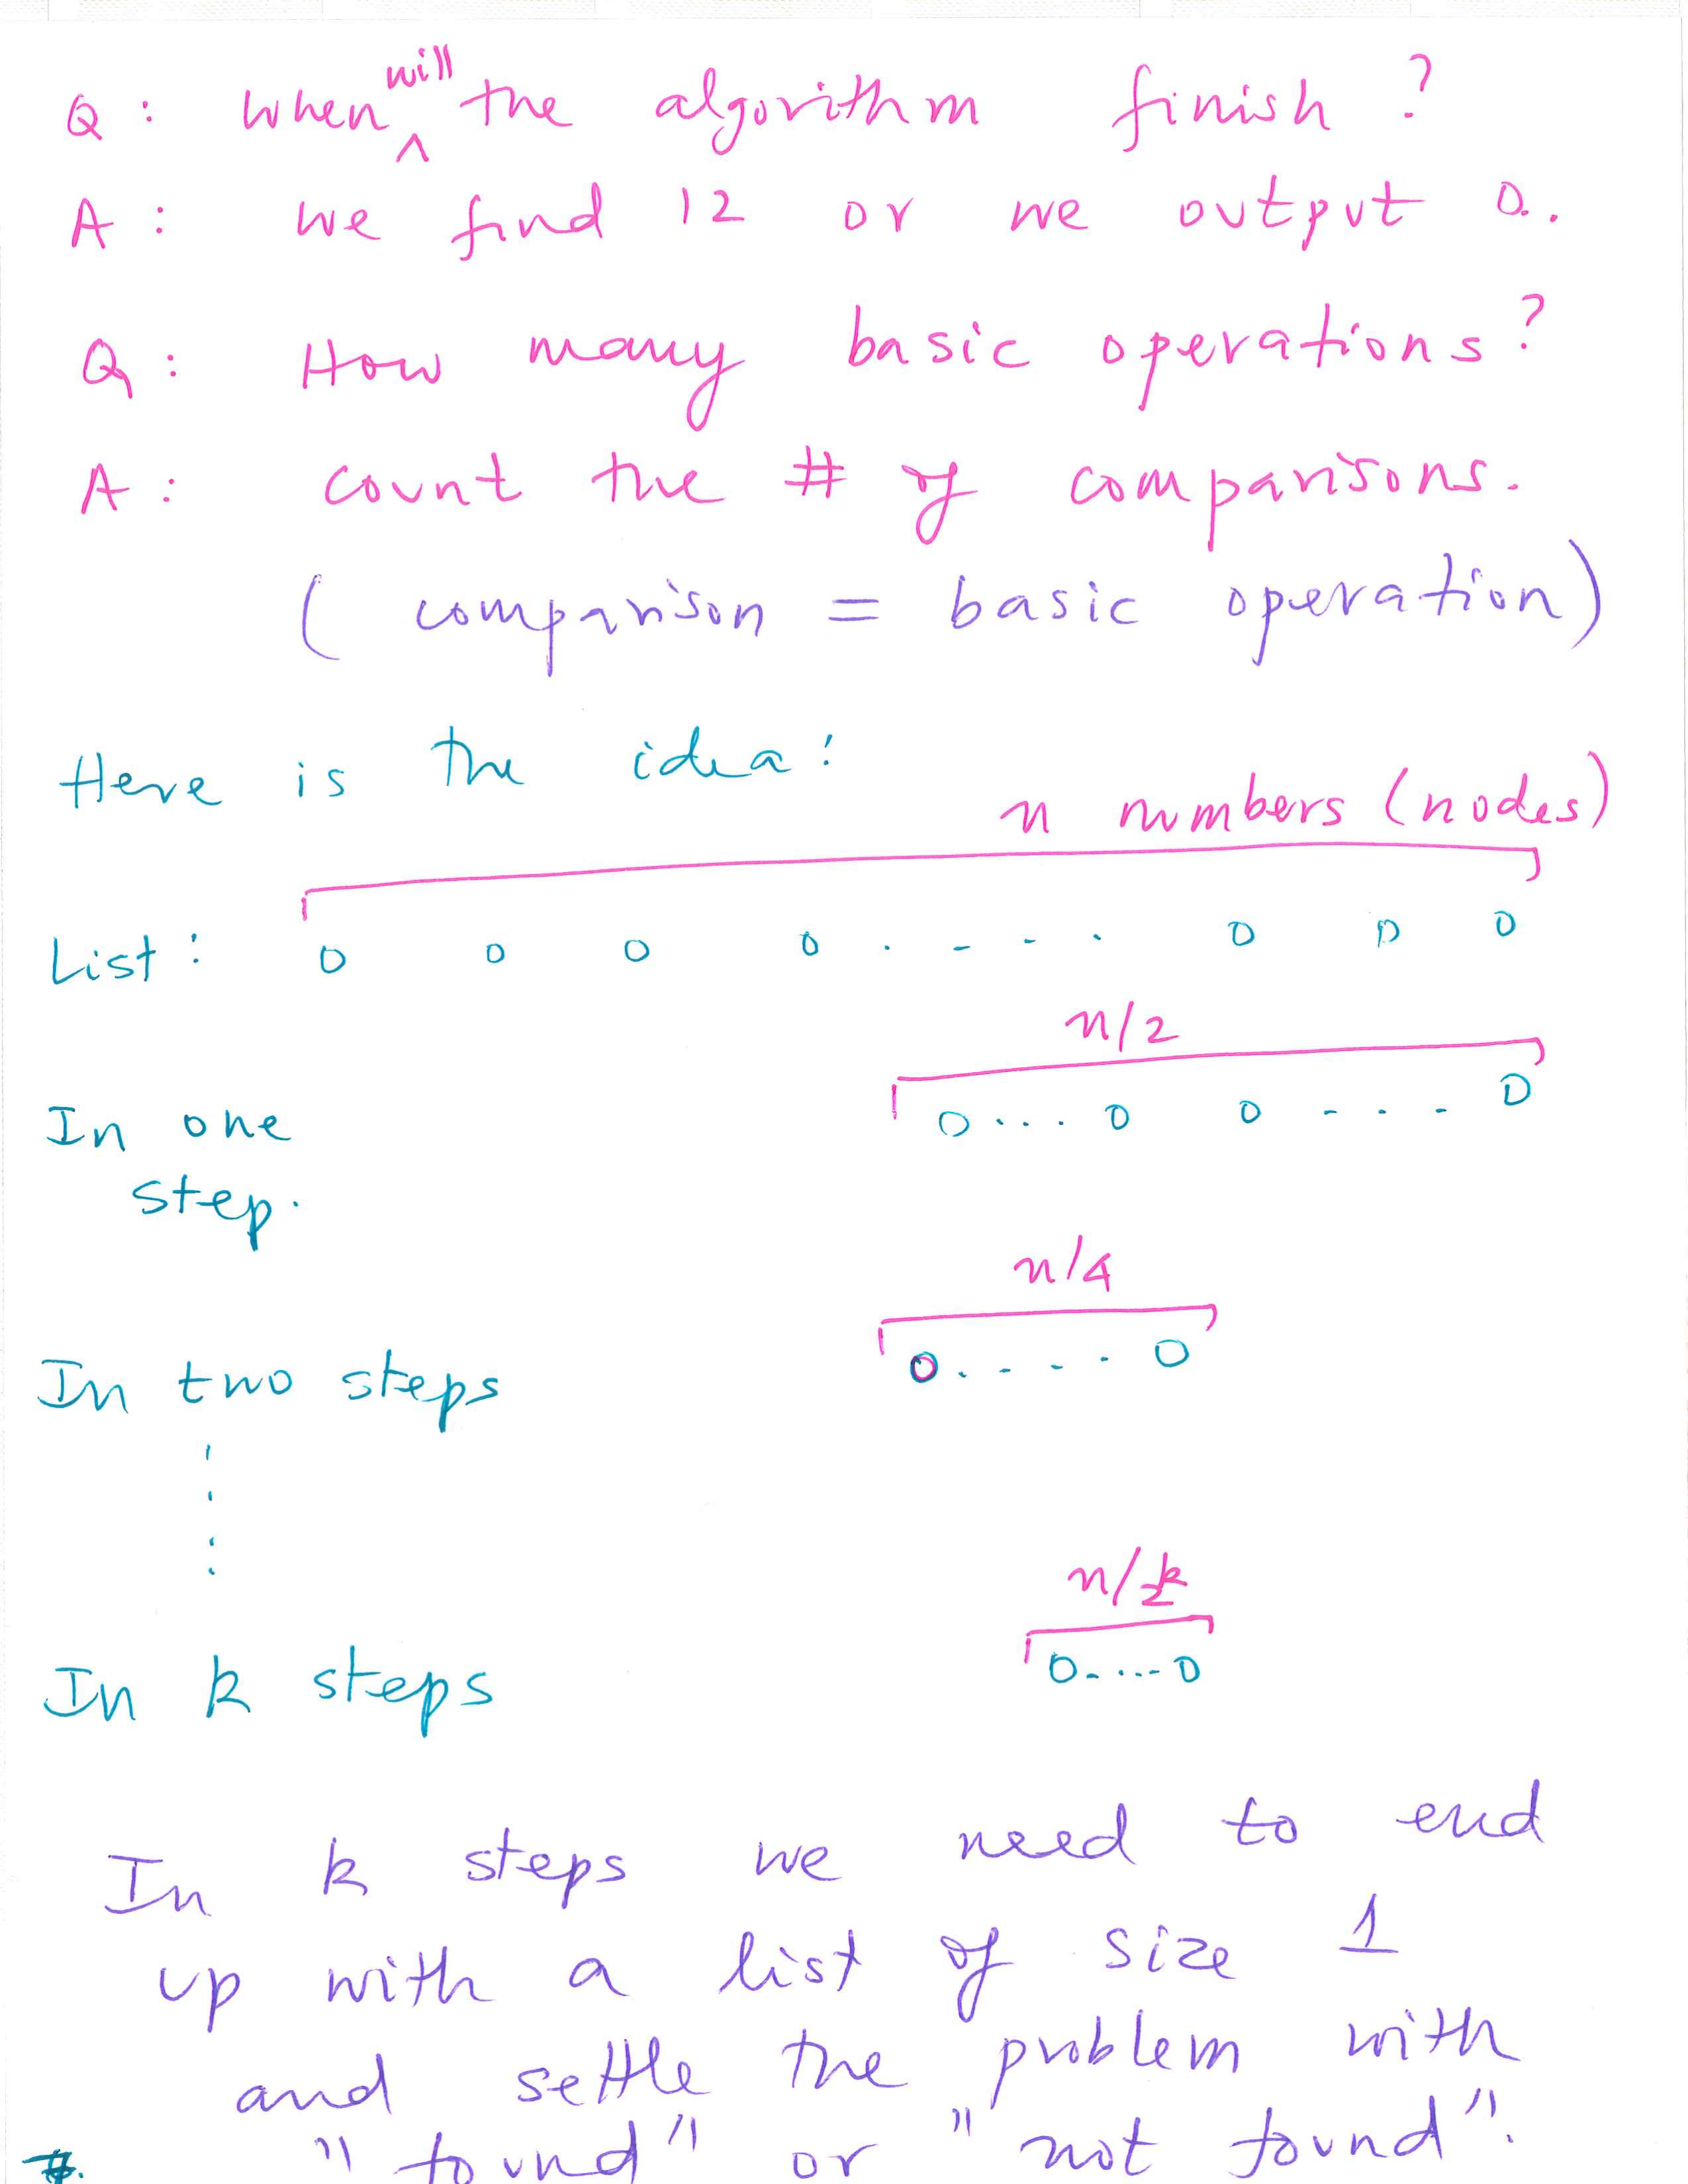 Q : When will the algorithm finish ?
A : we find 12 or we output 0.
Q : How many basic operations?
A : count the # of comparisons.
( comparison = basic operation)
Here is the idea:
n numbers (nodes)
List : 0 0 0 0 . - - . 0 0 0
n/2
In one 0 ... 0 0 - - - 0
step.
n/4
In two steps 0 . - - . 0
n/2^k
In k steps 0 - ... 0
In k steps we need to end
up with a list of size 1
and settle the problem with
"found" or "not found".